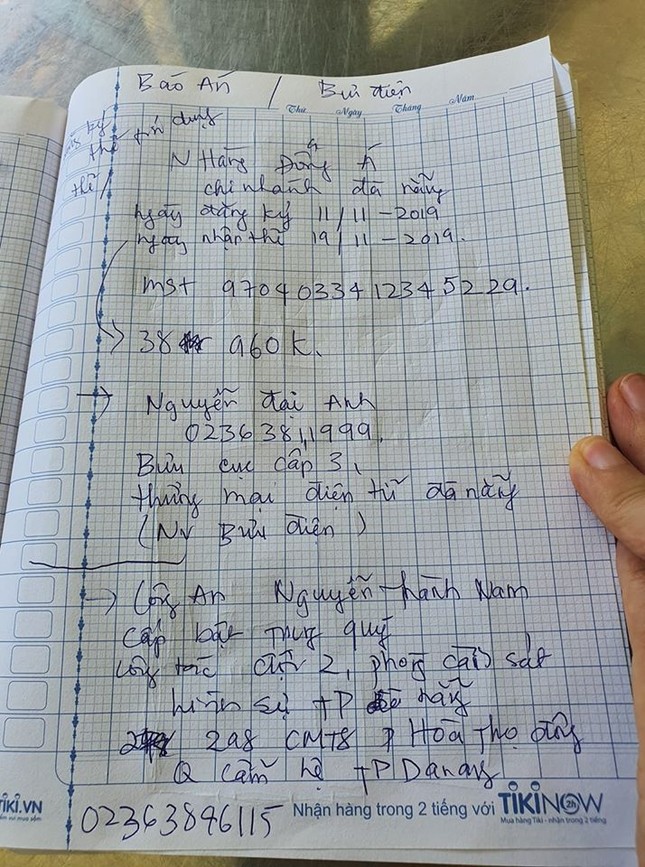 Báo Án / Bưu điện
Thứ Ngày Tháng Năm
tín dụng
N Hàng Đông Á
chi nhánh đà nẵng
ngày đăng ký 11/11-2019
ngày nhận thẻ 19/11-2019.
mst 9704033412345229.
38 960K.
Nguyễn đại Anh
02363811999.
Bưu cục cấp 3,
thương mại điện tử đà nẵng
(NV Bưu điện)
Công An Nguyễn thành Nam
cấp bậc Trung quý
công tác đội 2, phòng cảnh sát
hình sự TP nẵng
298 CMT8 P Hoà Thọ đông
Q cẩm lệ TP Danang
02363896115
TIKI.VN
Nhận hàng trong 2 tiếng với TIKINOW 2h
Mua hàng Tiki - nhận trong 2 tiếng